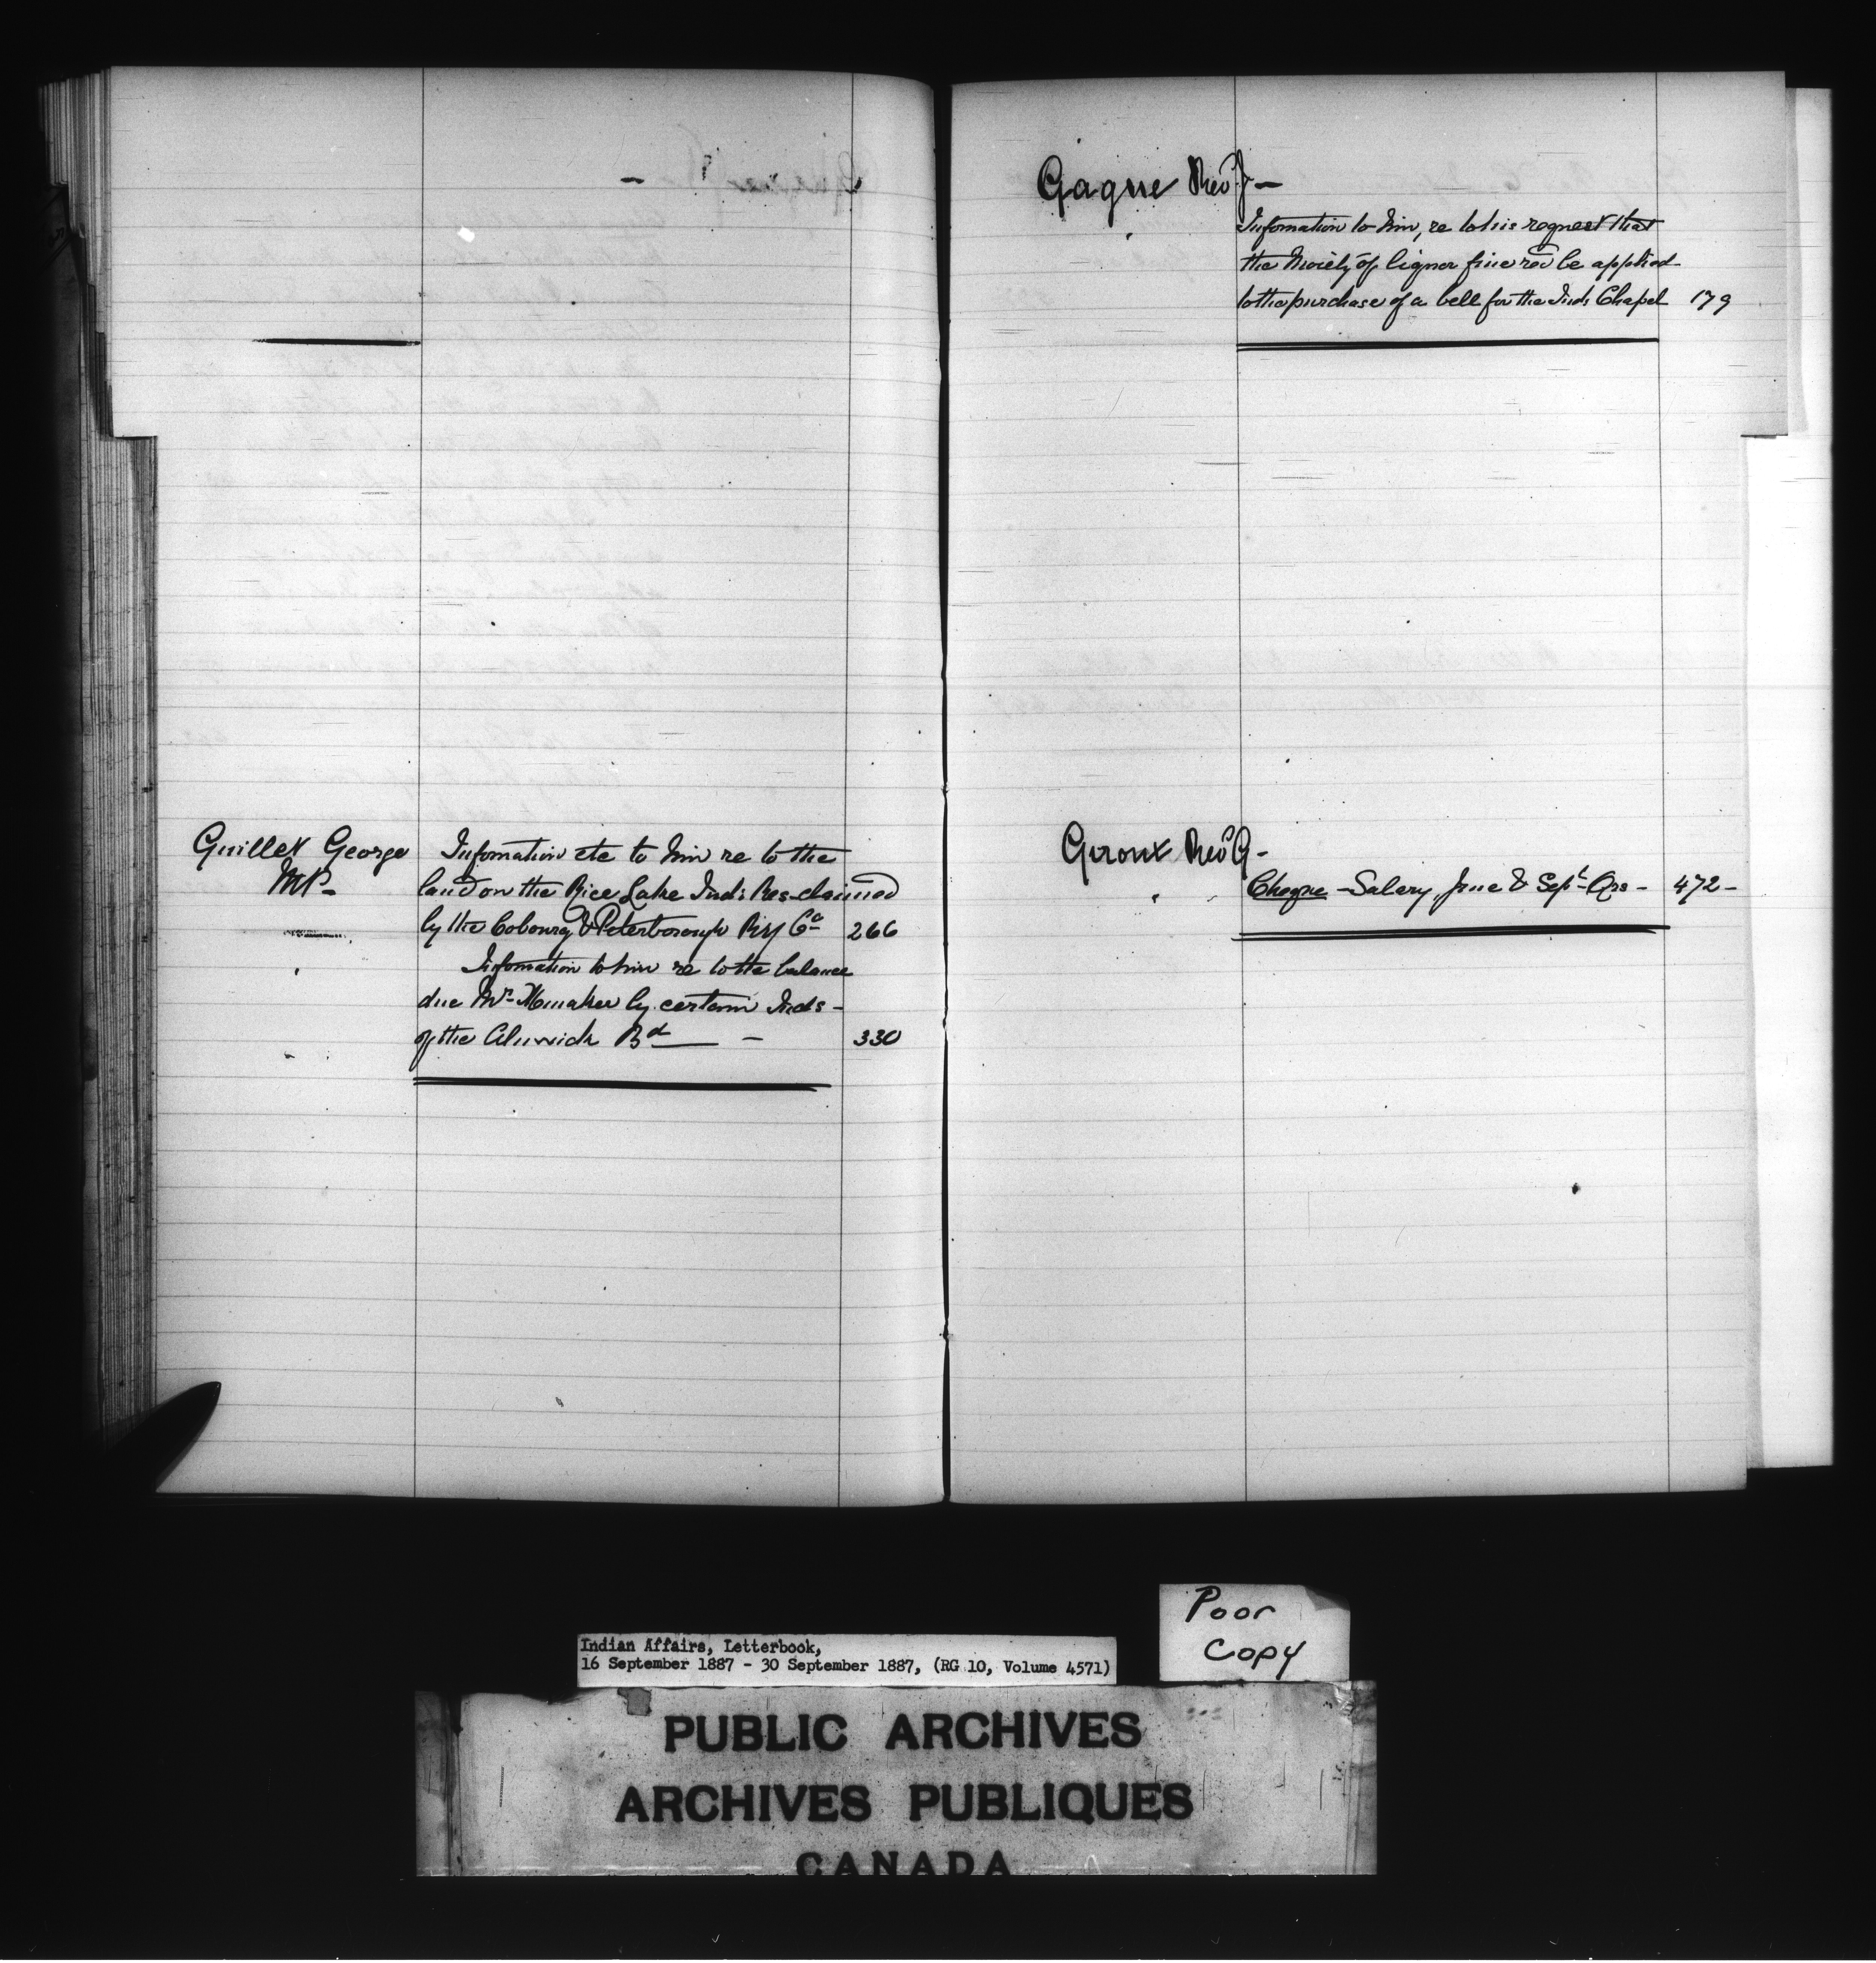 Guillet George
MP-
Information etc to him re to the
land on the Rice Lake Inds Res claimed
by the Cobourg & Peterborough Rly Co 266
Information to him re to the balance
due Mr by certain Inds -
of the Alnwick Bd — 330
Gagne Revd J -
Information to him, re to his request that
the Moiety of liquor fine red be applied
to the purchase of a bell for the Inds Chapel 179
Giroux Revd G -
Cheque - Salary, June & Sept Qrs - 472 -
Poor
Copy
Indian Affairs, Letterbook,
16 September 1887 - 30 September 1887, (RG 10, Volume 4571)
PUBLIC ARCHIVES
ARCHIVES PUBLIQUES
CANADA